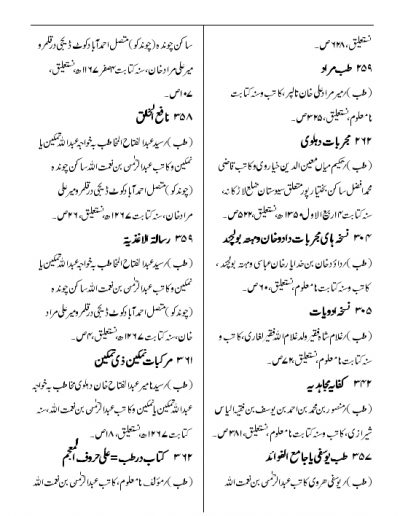 نستعلیق، ۶۲۸ص۔
۲۵۹ طب مراد
(طب) ر میر مراد علی خان تالپر، کاتب و سنہ کتابت
نامعلوم، ۳۲۵ص۔
۲۶۲ مجربات دہلوی
(طب) ر حکیم میاں معین الدین خیاروی و کاتب قاضی
محمد افضل ساکن بختیارپور متعلق سیوستان ضلع لاڑکانہ،
سنہ کتابت ۱۳ ربیع الاول ۱۳۵۰ھ، نستعلیق، ۵۲۲ص۔
۳۰۴ نسخہ ہای مجربات داود خان و مہتہ بولچند
(طب) ر داؤد خان بن خدایار خان عباسی و مہتہ بولچند،
کاتب و سنہ کتابت نامعلوم، نستعلیق، ۶۰ص۔
۳۰۵ نسخہ ادویات
(طب) ر غلام شاہ فقیر ولد غلام اللہ فقیر لغاری، کاتب و
سنہ کتابت نامعلوم، نستعلیق، ۷۲ص۔
۳۴۲ کفایہ مجاہدیہ
(طب) ر منصور بن محمد بن احمد بن یوسف بن فقیہ الیاس
شیرازی، کاتب و سنہ کتابت نامعلوم، نستعلیق، ۳۸۱ص۔
۳۵۷ طب یوسفی یا جامع الفوائد
(طب) ر یوسفی ھروی کاتب عبدالرحمٰن بن نعمت اللہ
ساکن چوندہ (چوندکو) متصل احمد آباد کوٹ ڈیجی در قلمرو
میر علی مراد خان، سنہ کتابت ۴ صفر ۱۲۶۷ھ، نستعلیق،
۱۰۷ص۔
۳۵۸ نافع الخلق
(طب) ر سید عبدالفتاح الخاطب بہ خواجہ عبداللہ تمکین یا
نمکین و کاتب عبدالرحمٰن بن نعمت اللہ ساکن چوندہ
(چوندکو) متصل احمد آباد کوٹ ڈیجی در قلمرو میر علی
مراد خان، سنہ کتابت ۱۲۶۷ھ، نستعلیق، ۲۶ص۔
۳۵۹ رسالۃ الاغذیہ
(طب) ر سید عبدالفتاح الخاطب بہ خواجہ عبداللہ تمکین یا
نمکین و کاتب عبدالرحمٰن بن نعمت اللہ ساکن چوندہ
(چوندکو) متصل احمد آباد کوٹ ڈیجی در قلمرو میر علی مراد
خان، سنہ کتابت ۱۲۶۷ھ، نستعلیق، ۴ص۔
۳۶۱ مرکبات نمکین ذی تمکین
(طب) ر سید نامیر عبدالفتاح خان دہلوی مخاطب بہ خواجہ
عبداللہ تمکین یا نمکین و کاتب عبدالرحمٰن بن نعمت اللہ، سنہ
کتابت ۱۲۶۷ھ، نستعلیق، ۱۸ص۔
۳۶۲ کتاب در طب = علی حروف المعجم
(طب) ر مؤلف نامعلوم، کاتب عبدالرحمٰن بن نعمت اللہ